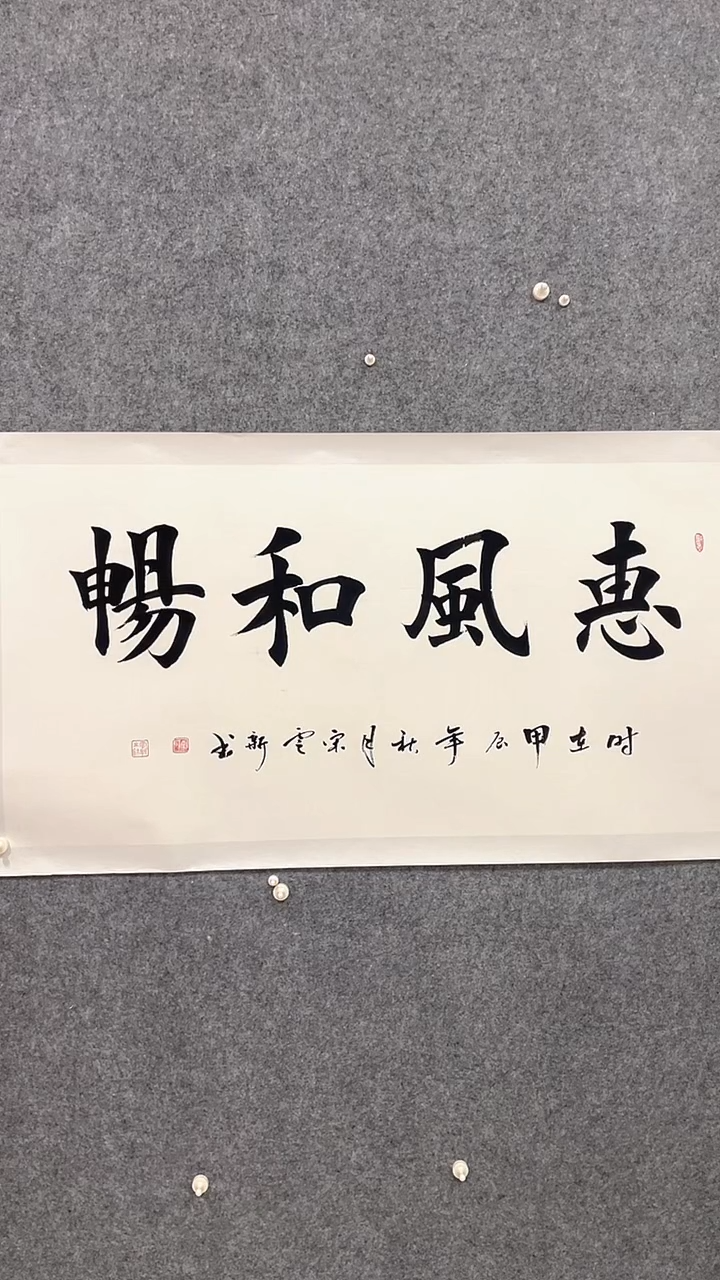 惠風和暢
时在甲辰年秋月宋雲新书